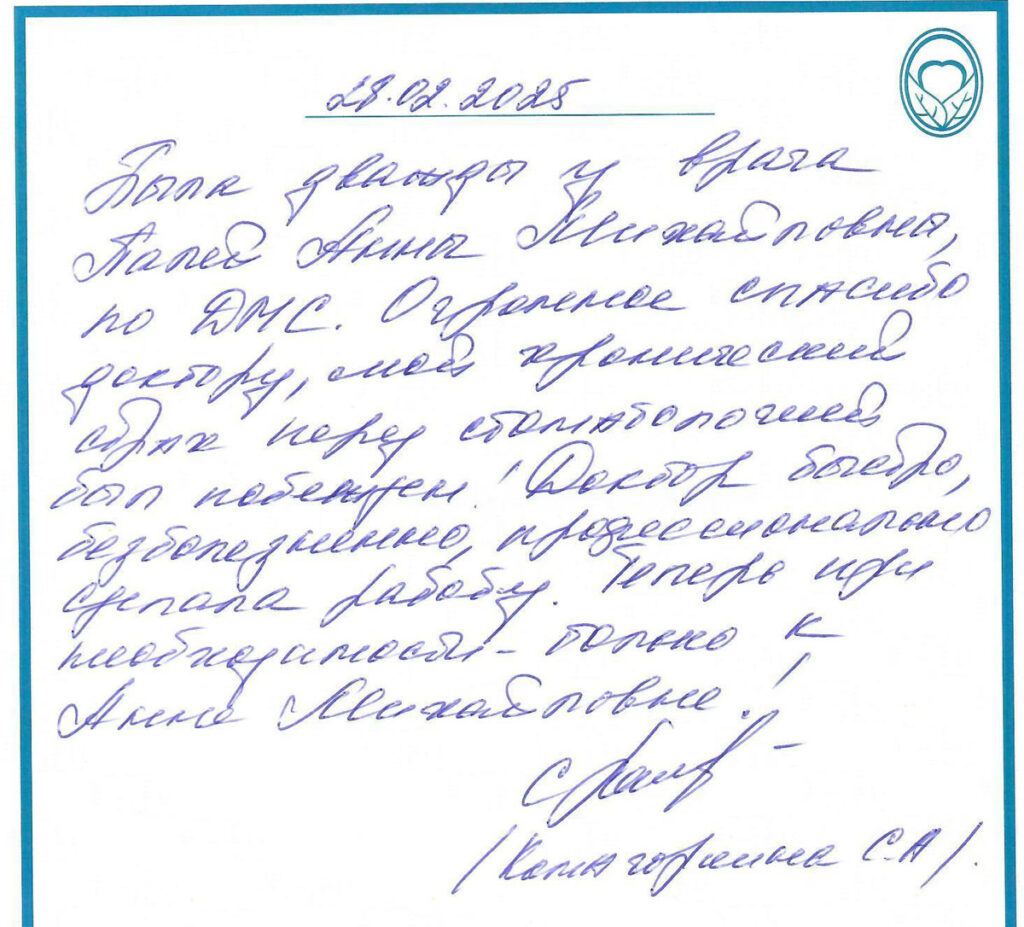 28.02.2025
Была дважды у врача
Палей Анны Михайловны,
по ДМС. Огромное спасибо
доктору, мой хронический
страх перед стоматологией
был побежден! Доктор быстро,
безболезненно, профессионально
сделала работу. Теперь при
необходимости - только к
Анне Михайловне!
С. А